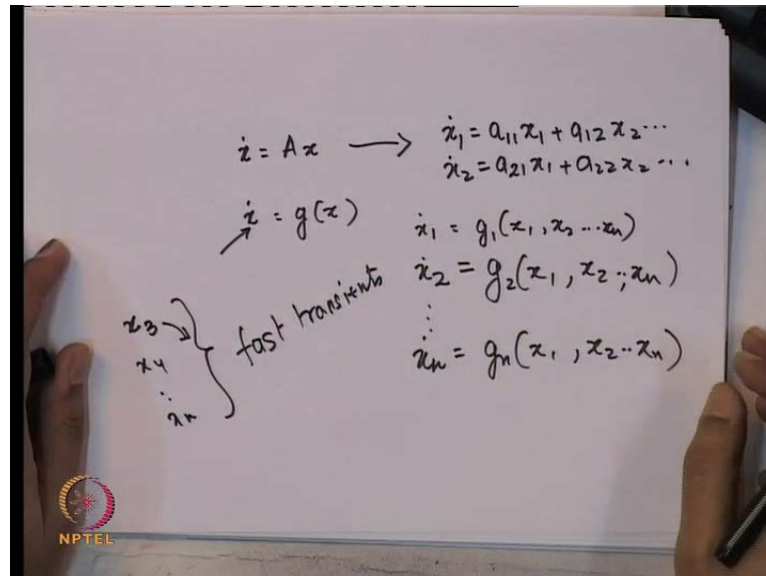 ẋ = Ax → ẋ₁ = a₁₁x₁ + a₁₂x₂ ...
ẋ₂ = a₂₁x₁ + a₂₂x₂ ...
ẋ = g(x)
ẋ₁ = g₁(x₁, x₂ ... xₙ)
ẋ₂ = g₂(x₁, x₂ .. , xₙ)
⋮
ẋₙ = gₙ(x₁, x₂ .. xₙ)
x₃
x₄
⋮
xₙ
fast transients
NPTEL